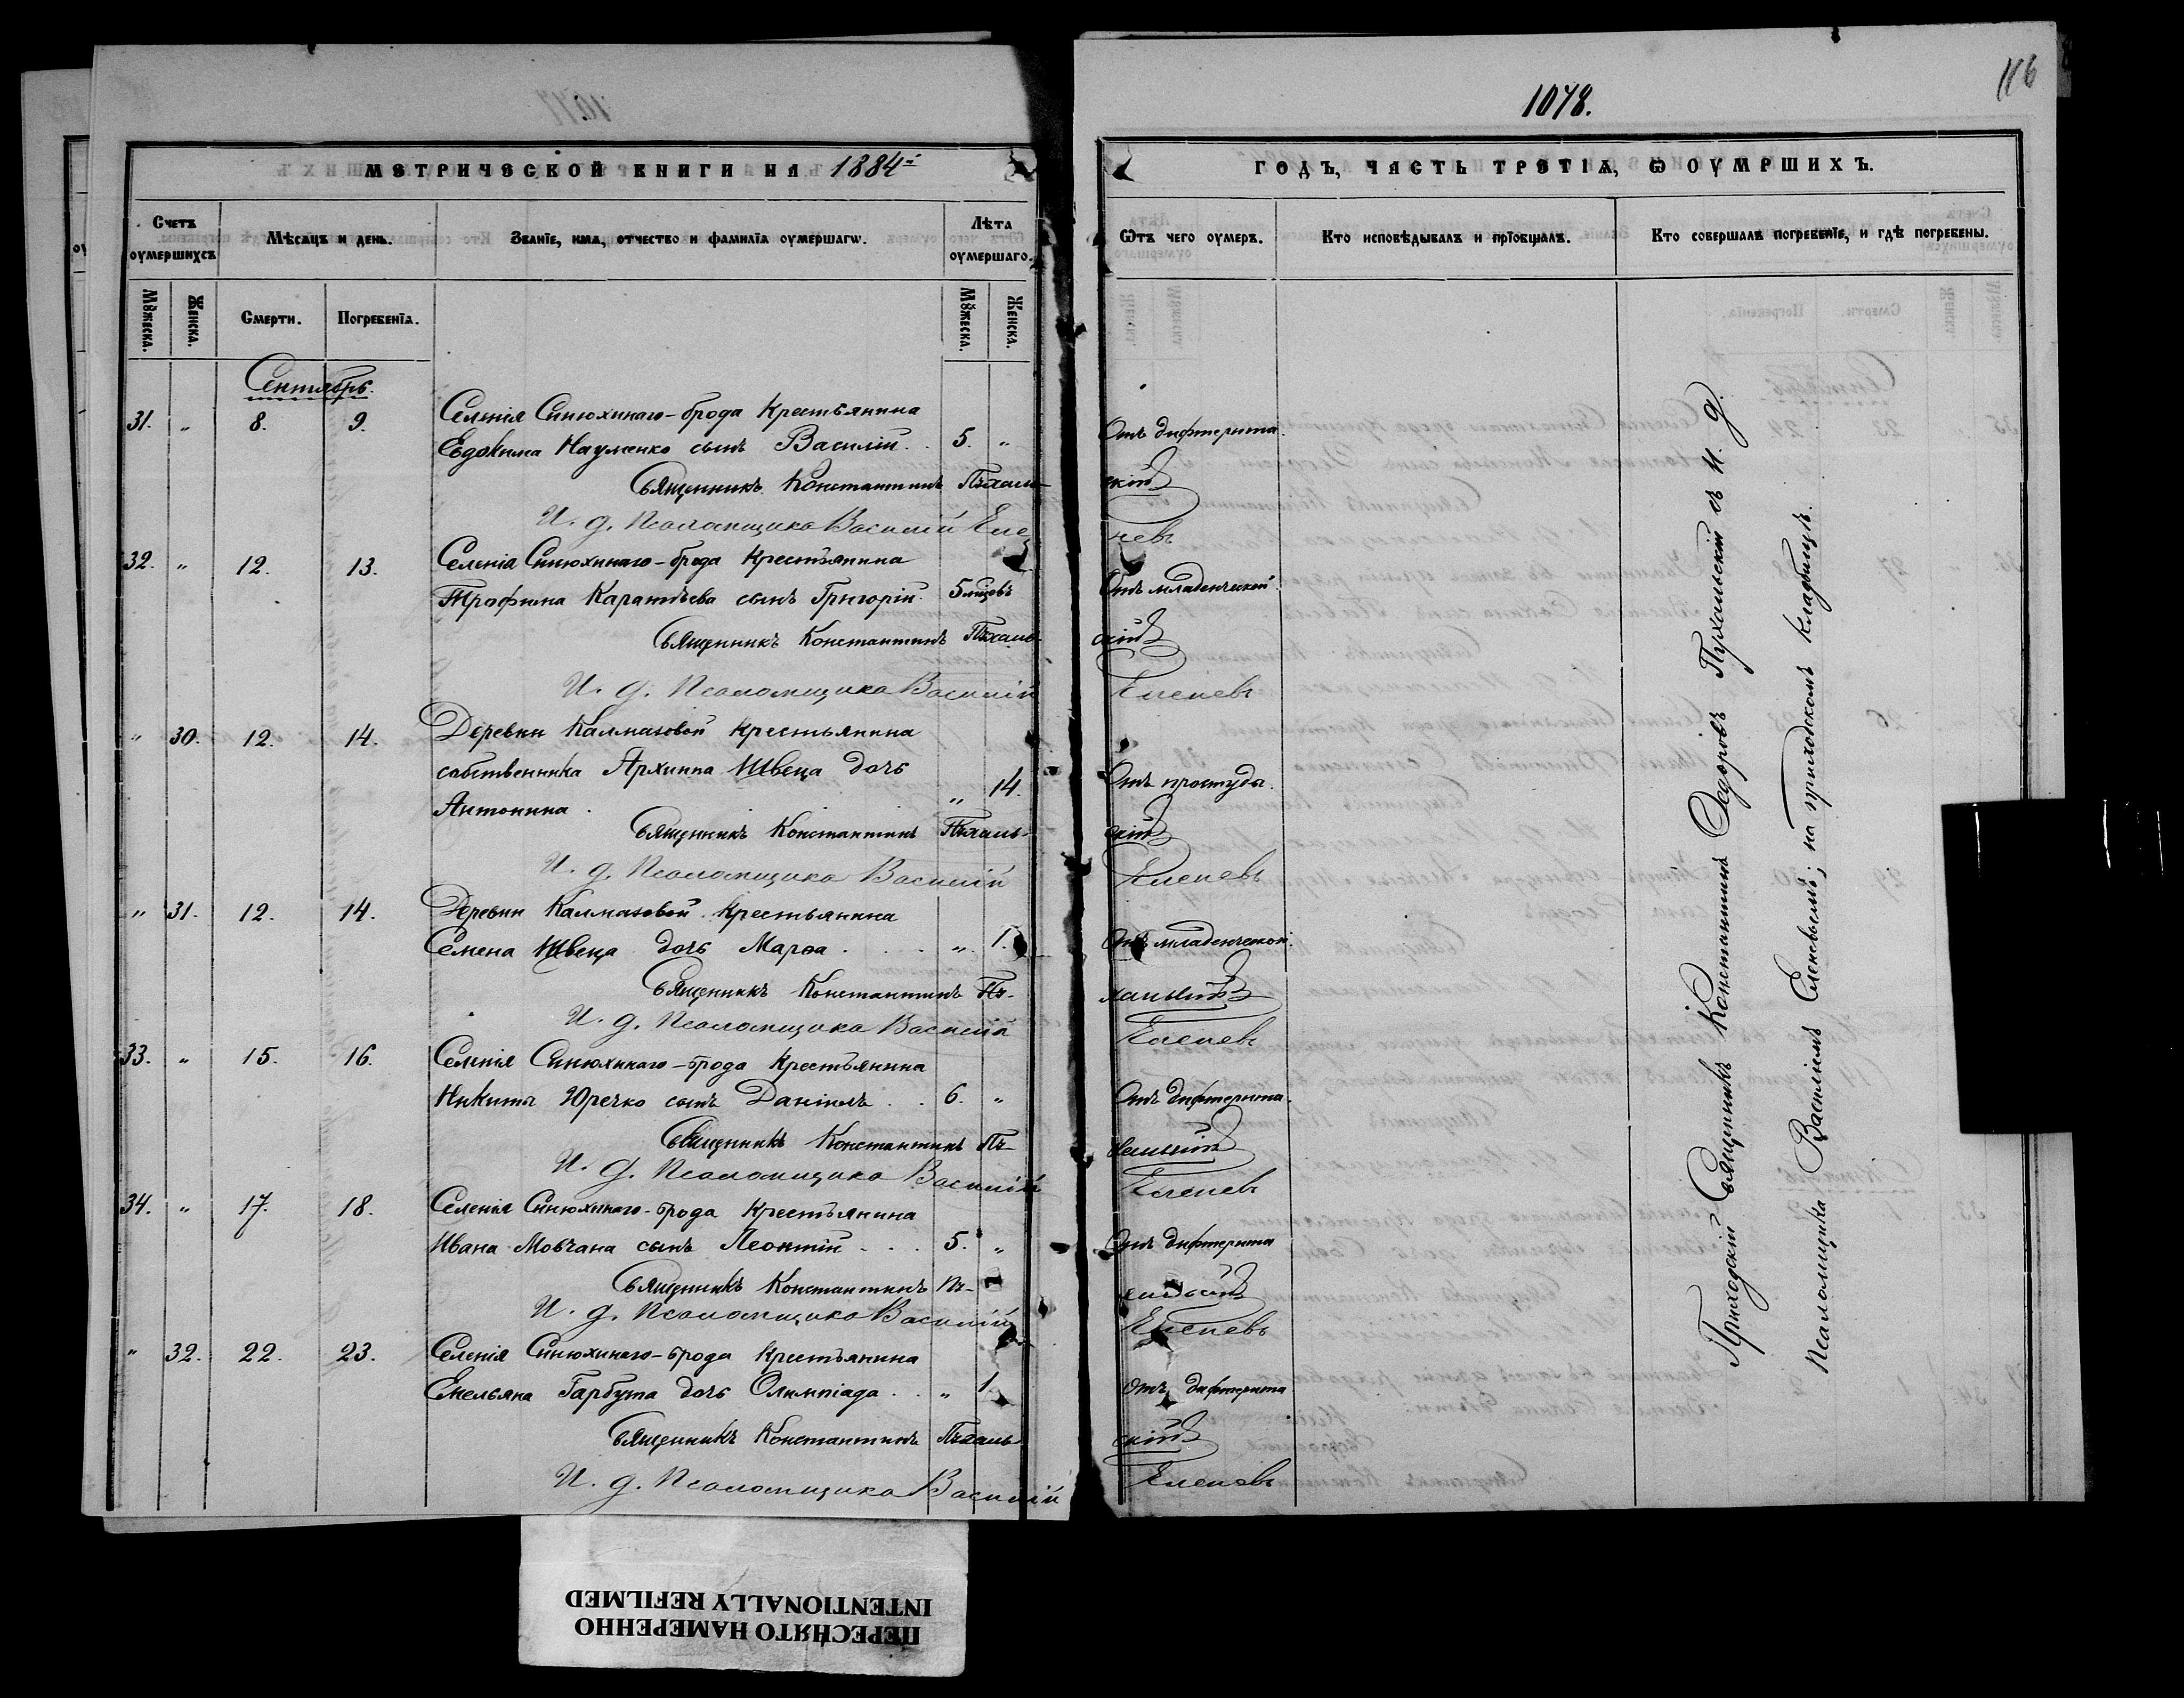 1078.
116
МЕТРИЧЕСКОЙ КНИГИ НА 1884й
ГОДЪ, ЧАСТЬ ТРЕТІѦ, Ѡ ОУМРШИХЪ.
Счетъ оумершихъ
Мѣсѧцъ и день.
Званїе, имѧ, отчество и фамилїѧ оумершагѡ.
Лѣта оумершаго.
Ѿтъ чего оумеръ.
Кто исповѣдывалъ и прїобщалъ.
Кто совершалъ погребенїе, и гдѣ погребены.
Мꙋжеска.
Женска.
Смерти.
Погребенїѧ.
Мꙋжеска.
Женска.
Сентябрь.
31. " 8. 9. Селенія Синюхинаго-брода крестьянина
Евдокима Науменко сынъ Василій. 5. " Отъ дифтерита.
Священникъ Константинъ Пѣхальскій
И. д. Псаломщика Василій Еленевъ
32. " 12. 13. Селенія Синюхинаго-брода крестьянина
Трофима Каратѣева сынъ Григорій. 5 мцовъ Отъ младенческой.
Священникъ Константинъ Пѣхальскій
И. д. Псаломщика Василій Еленевъ
" 30. 12. 14. Деревни Калмазовой крестьянина
собственника Архипа Швеца дочь
Антонина. " 14. Отъ простуды.
Священникъ Константинъ Пѣхальскій
И. д. Псаломщика Василій Еленевъ
" 31. 12. 14. Деревни Калмазовой крестьянина
Семена Швеца дочь Марѳа " 1. Отъ младенческой.
Священникъ Константинъ Пѣхальскій
И. д. Псаломщика Василій Еленевъ
33. " 15. 16. Селенія Синюхинаго-брода крестьянина
Никиты Юречко сынъ Даніилъ 6. " Отъ дифтерита.
Священникъ Константинъ Пѣхальскій
И. д. Псаломщика Василій Еленевъ
34. " 17. 18. Селенія Синюхинаго-брода крестьянина
Ивана Мовчана сынъ Леонтій 5. " Отъ дифтерита
Священникъ Константинъ Пѣхальскій
И. д. Псаломщика Василій Еленевъ
" 32. 22. 23. Селенія Синюхинаго-брода крестьянина
Емельяна Гарбуза дочь Олимпіада " 1. Отъ дифтерита
Священникъ Константинъ Пѣхальскій
И. д. Псаломщика Василій Еленевъ
Приходскій Священникъ Константинъ Ѳедоровъ Пѣхальскій съ И. д.
Псаломщика Василіемъ Еленевымъ; на приходскомъ кладбищѣ.
ПЕРЕСНЯТО НАМЕРЕННО
INTENTIONALLY REFILMED